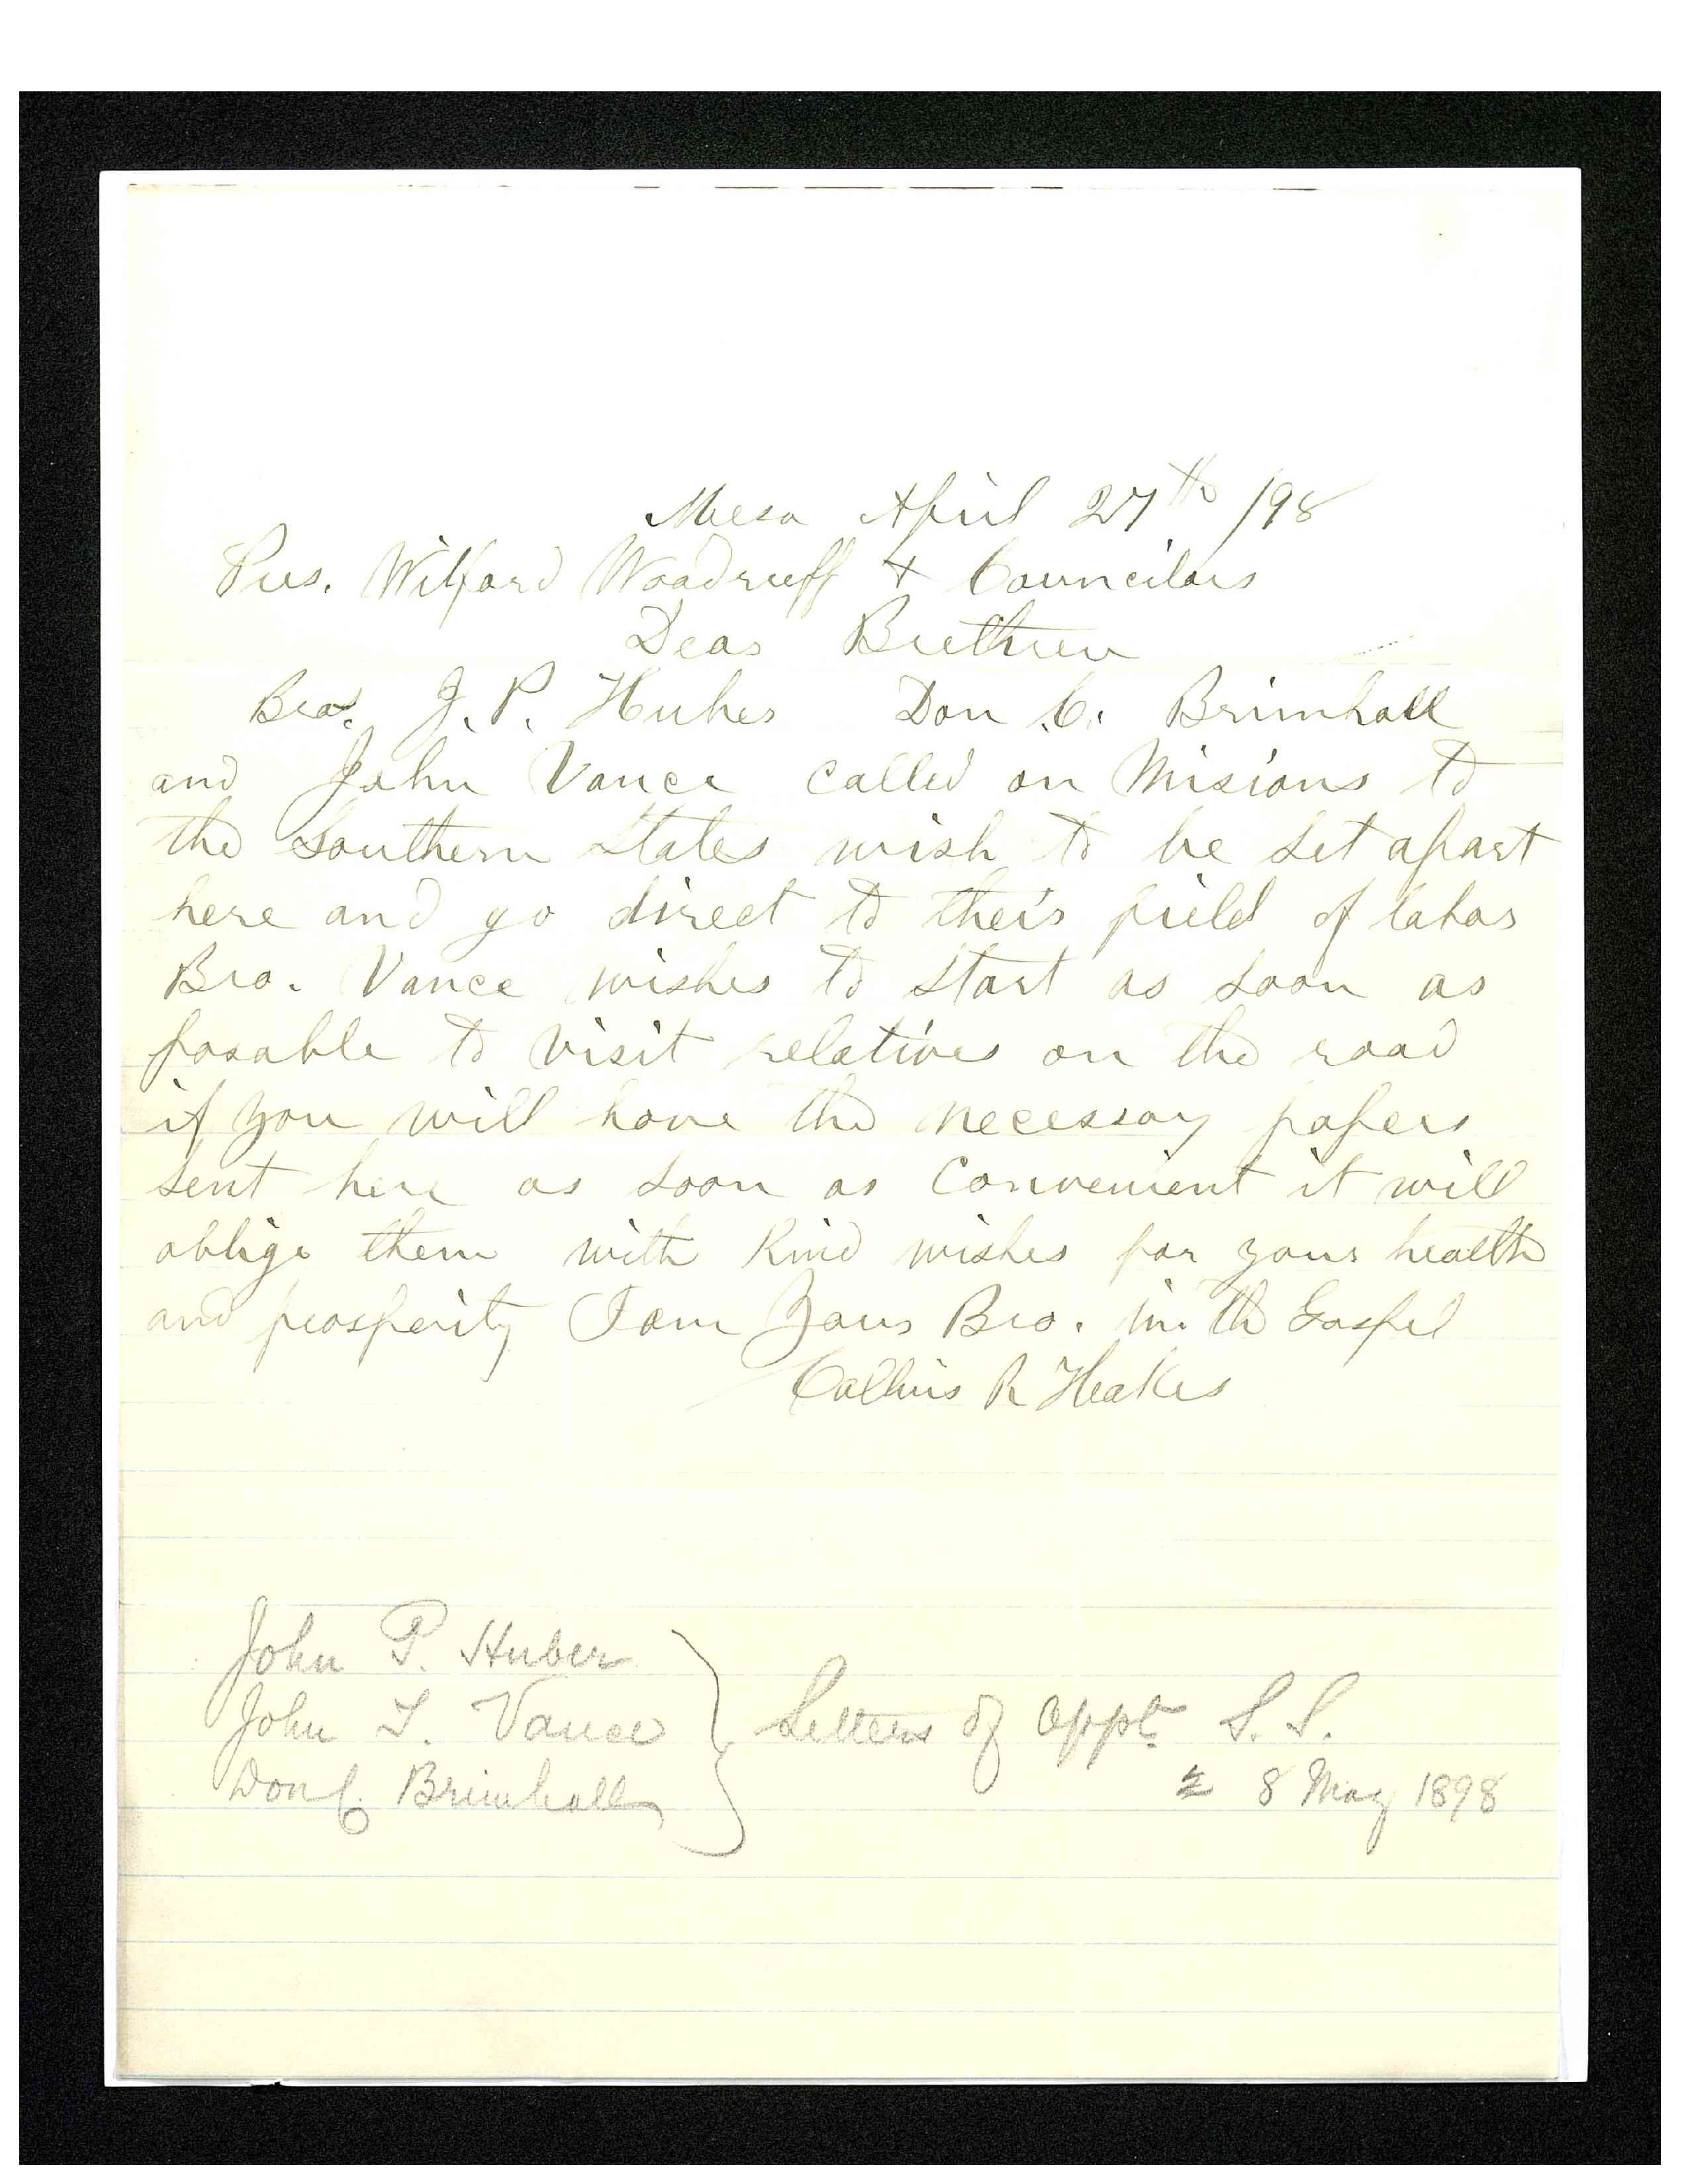 Mesa April 27th /98
Pres. Wilford Woodruff + Councilors
Dear Brethren
Bros. J. P. Huber Don C. Brimhall
and John Vance called on Misions to
the Southern States wish to be set apart
here and go direct to their field of labor
Bro. Vance wishes to start as soon as
posable to visit relatives on the road
if you will have the necessary papers
sent here as soon as Convenient it will
oblige them with Kind wishes for your health
and prosperity I am Your Bro. in the Gospel
Collins R Hakes
John P. Huber
John T. Vance
Don C. Brimhall
Letters of appt. S. S.
8 May 1898